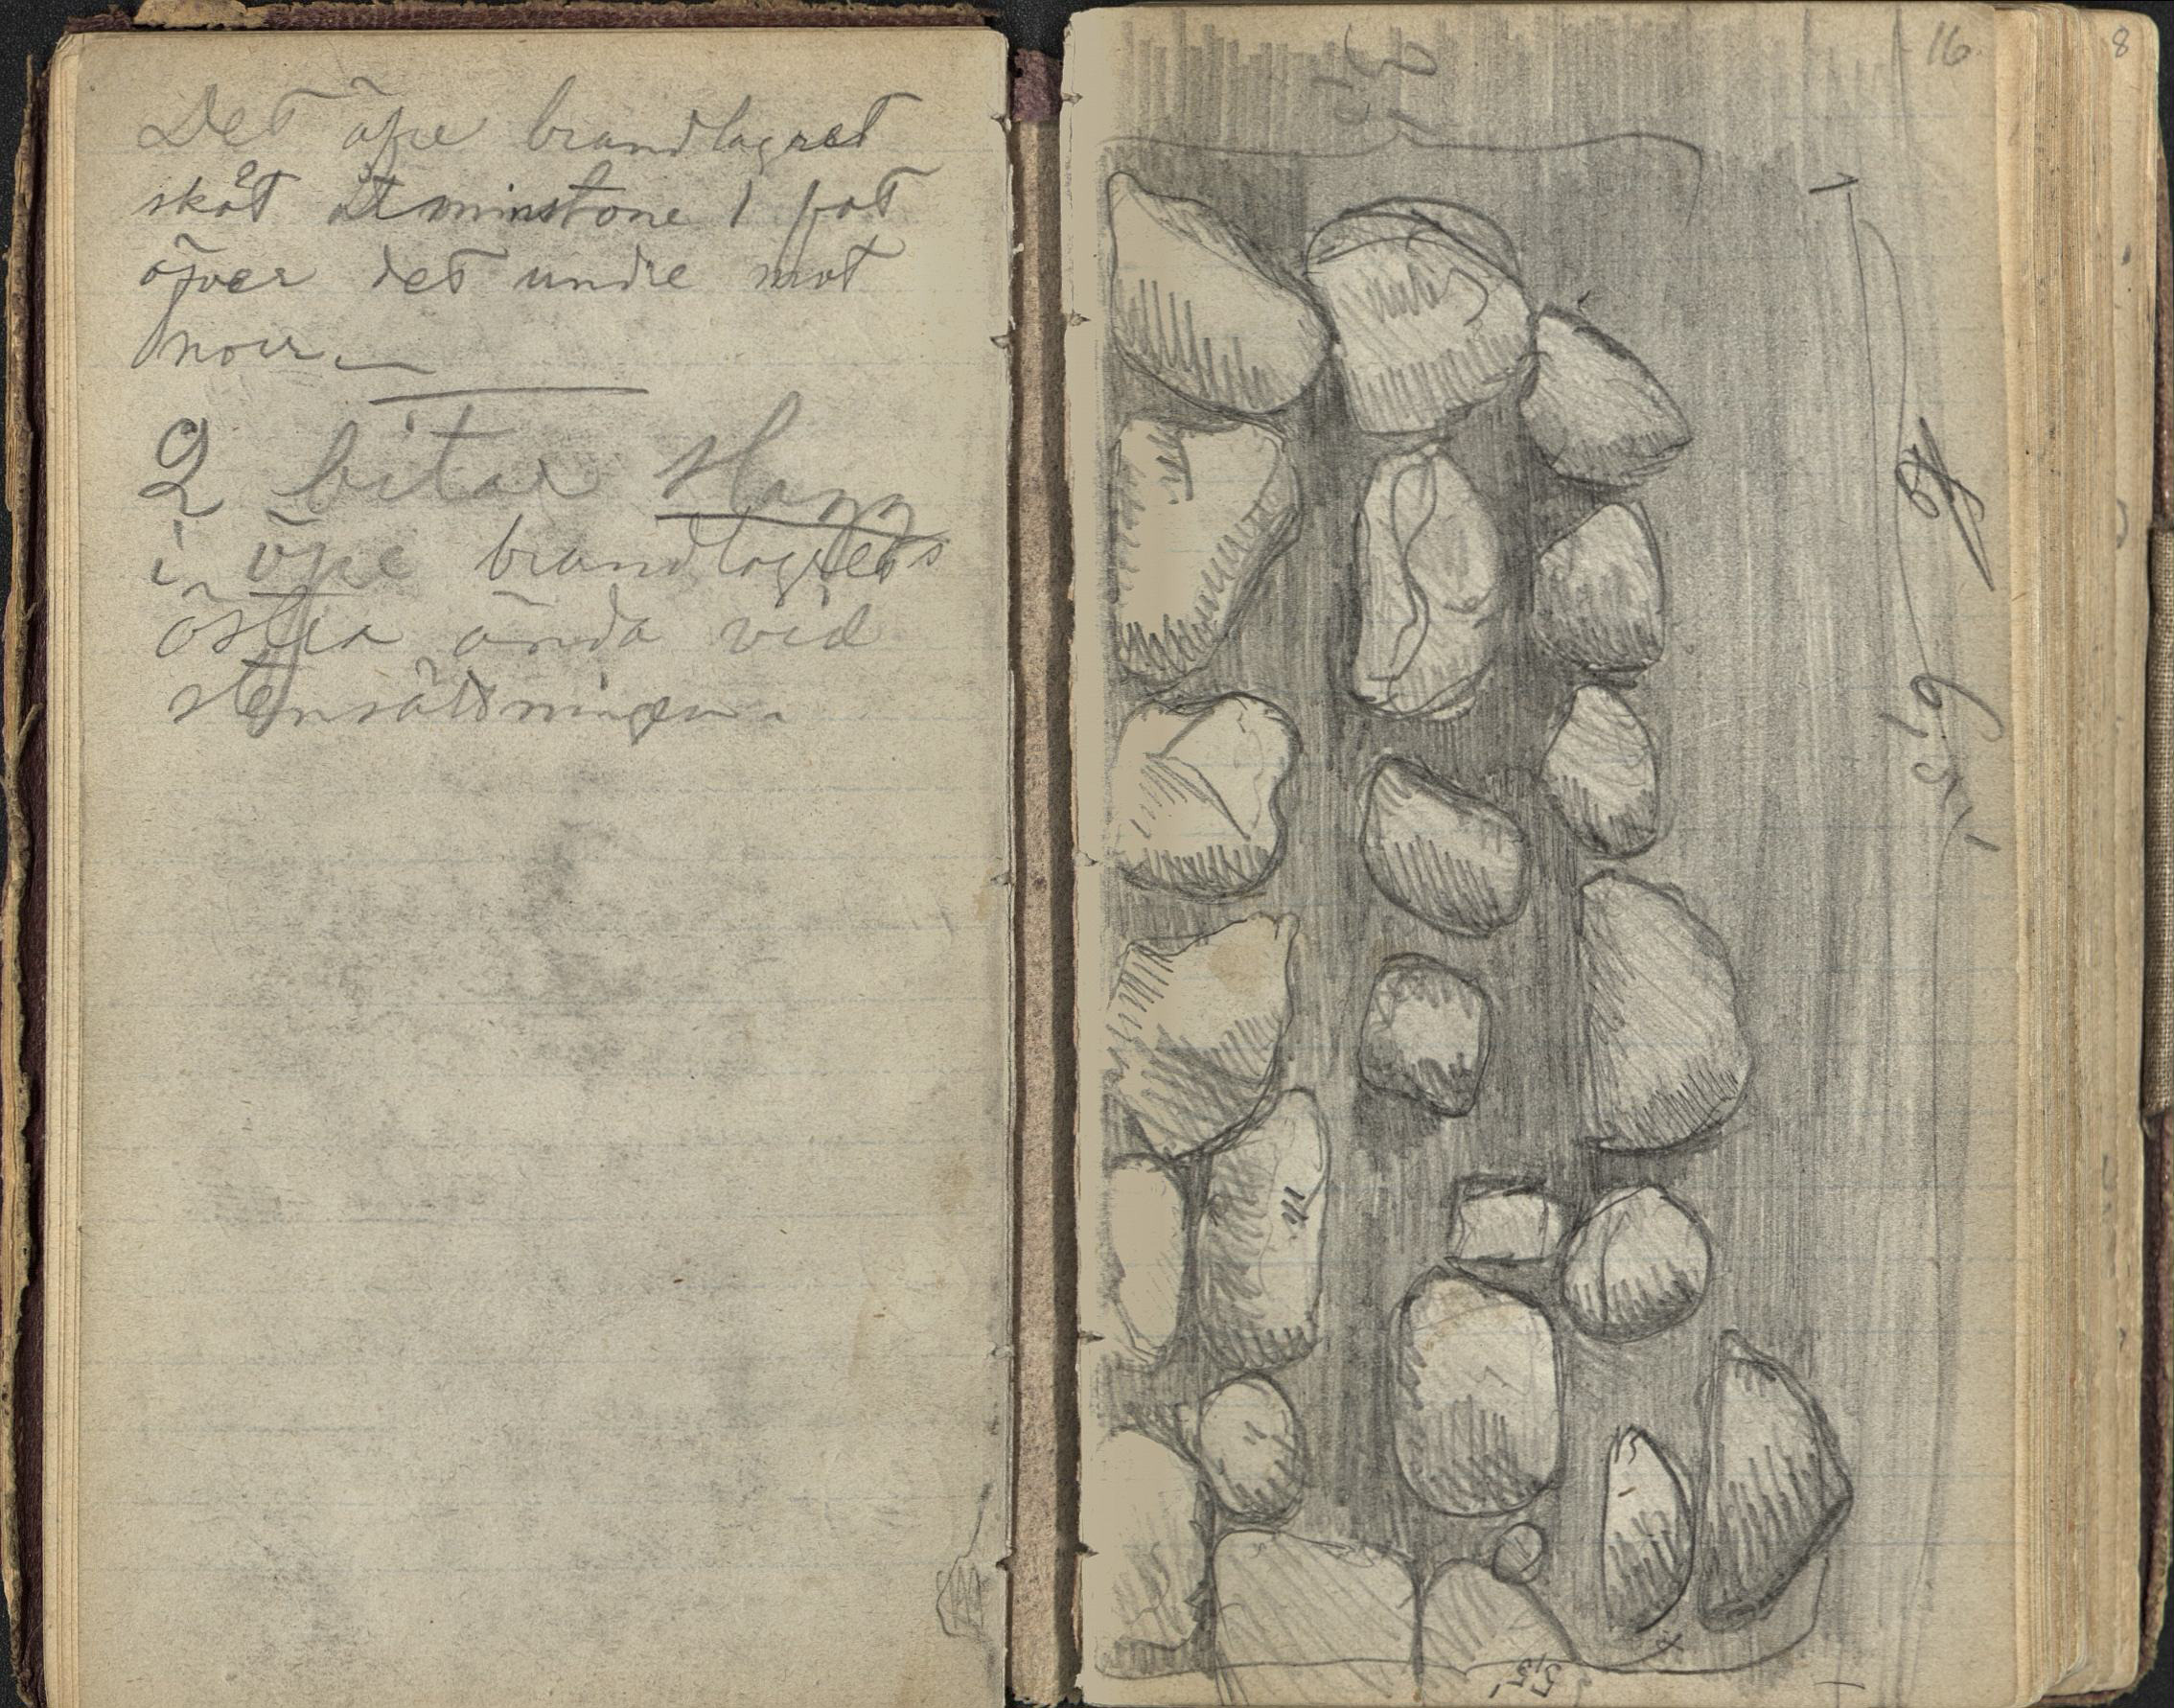 Det öfre brandlagret
sköt åtminstone 1 fot
öfver det undre mot
norr.
2 bitar slagg
i öfre brandlagrets
östra ända vid
stensättningen.
16
8
6,5'
5,5'